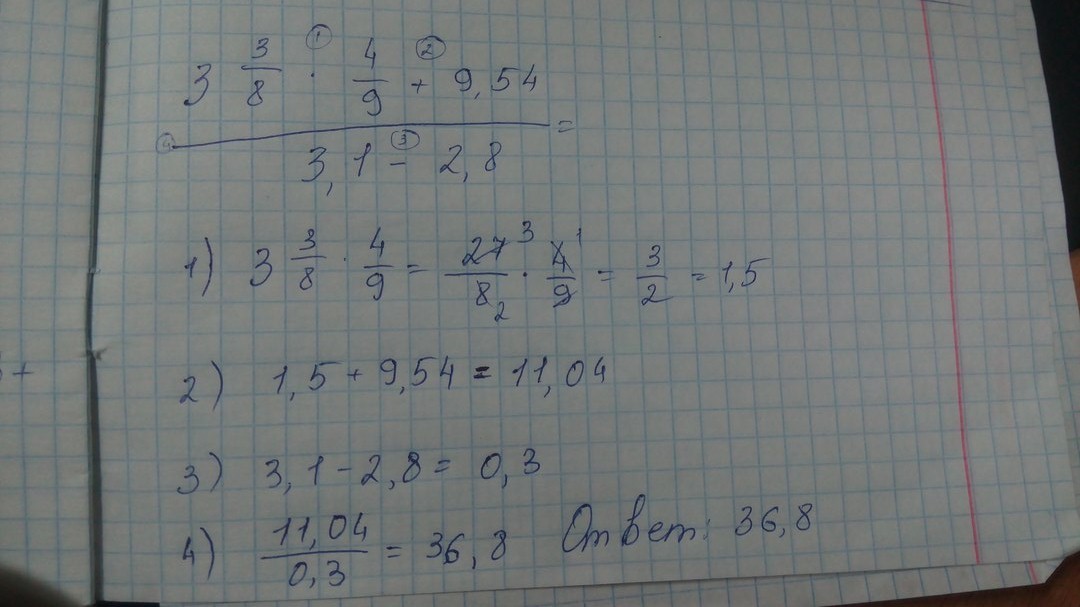 3 3/8 ① · 4/9 + ② 9,54
④ ─────────── =
3,1 - ③ 2,8
1) 3 3/8 · 4/9 = 27 3/8 2 · 4 1/9 = 3/2 = 1,5
2) 1,5 + 9,54 = 11,04
3) 3,1 - 2,8 = 0,3
4) 11,04/0,3 = 36,8 Ответ: 36,8